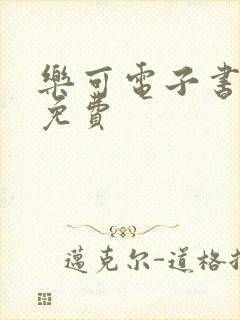 樂可電子書
免費
邁克尔-道格拉